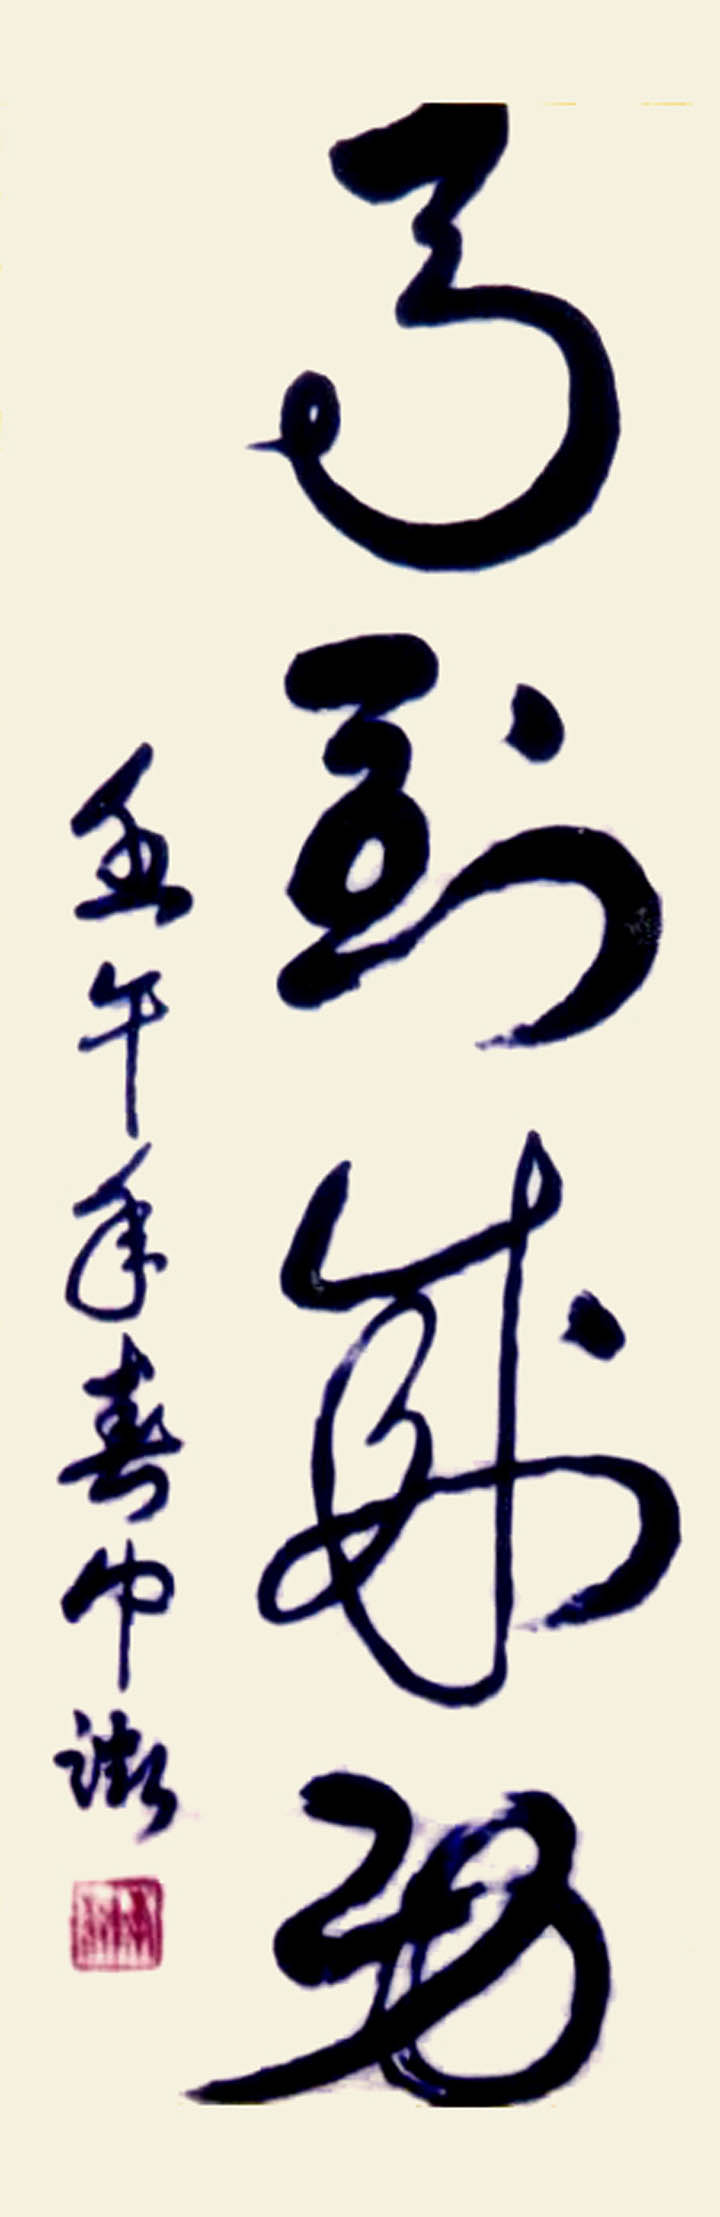 马到成功
壬午年春巾漪